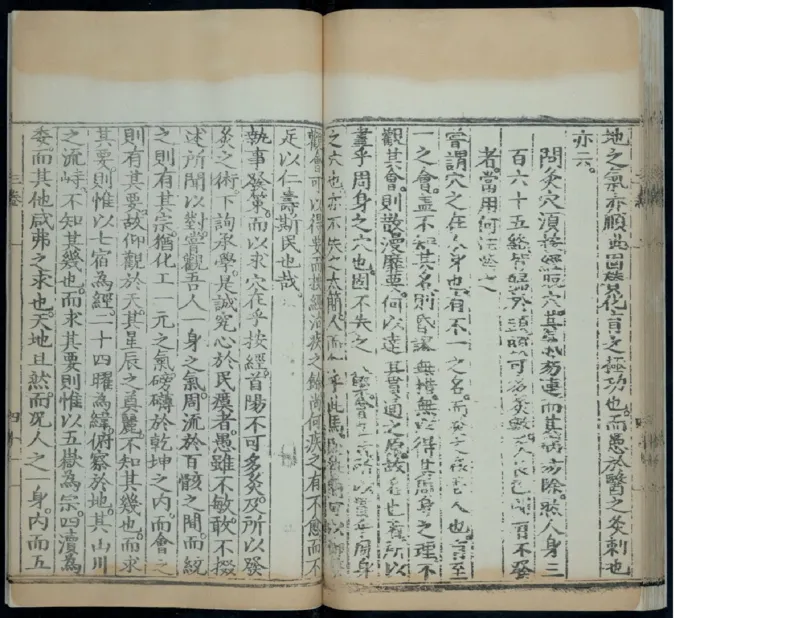 地之氣亦順此固族兌化育之極功也而愚於醫之灸刺也
亦云
問灸穴須按經取穴其氣易連而其病易除然人身三
百六十五絡皆歸於頭頭可多灸歟灸良已間有不發
者當用何法發之
嘗謂穴之在人身也有不一之名而灸之在吾人也有至
一之會蓋不知其名則昏謬無措無以得其周身之理不
觀其會則散漫靡要何以達其貫通之原故名也者所以
盡乎周身之穴也固不失之
之穴也亦不失之太簡人而
觀會可以得 而按經治疾之餘尚何疾之有不愈而不
足以仁壽斯民也哉
執事發策而以求穴在乎按經首陽不可多灸及所以發
灸之術下詢承學是誠究心於民瘼者愚雖不敏敢不掇
述所聞以對嘗觀吾人一身之氣周流於百骸之間而統
之則有其宗猶化工一元之氣磅礴於乾坤之內而會之
則有其要故仰觀於天其星辰之奠麗不知其幾也而求
其要則惟以七宿為經二十四曜為緯俯察於地其山川
之流峙不知其幾也而求其要則惟以五嶽為宗四瀆為
委而其他咸弗之求也天地且然而況人之一身內而五
三卷